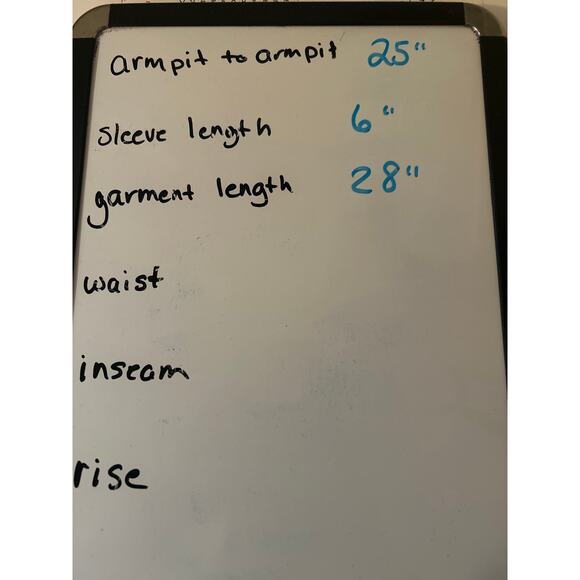 armpit to armpit 25"
sleeve length 6"
garment length 28"
waist
inseam
rise